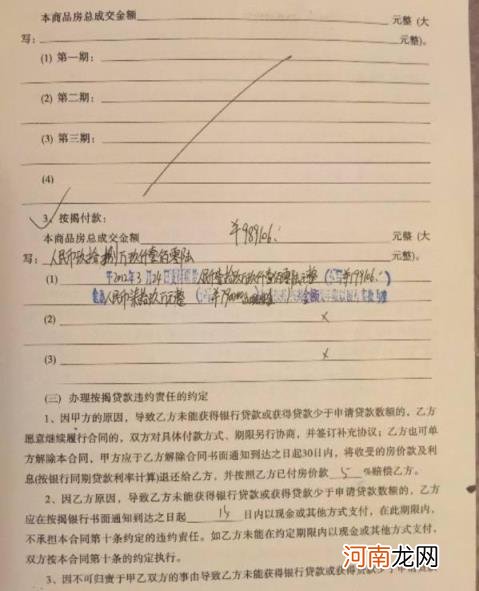 本商品房总成交金额 元整(大
写: 元整)。
(1) 第一期:
(2) 第二期:
(3) 第三期:
(4)
3、按揭付款:
本商品房总成交金额 ¥989106. 元整(大
写:人民币玖拾捌万玖仟壹佰零陆 元整)。
(1) 于2012年3月24日 人民币壹拾玖万玖仟壹佰零陆元整 ¥199106.
人民币柒拾玖万元整 ¥790000 金额
(2) ×
(3) ×
(三) 办理按揭贷款违约责任的约定
1、因甲方的原因,导致乙方未能获得银行贷款或获得贷款少于申请贷款数额的,乙方
愿意继续履行合同的,双方对具体付款方式、期限另行协商,并签订补充协议;乙方也可单
方解除本合同,甲方应于乙方解除合同书面通知到达之日起30日内,将收受的房价款及利
息(按银行同期贷款利率计算)退还给乙方,并按照乙方已付房价款 5 %赔偿乙方。
2、因乙方原因,导致乙方未能获得银行贷款或获得贷款少于申请贷款数额的,乙方
应在按揭银行书面通知到达之日起 15 日内以现金或其他方式支付,在此期限内,
不承担本合同第十条约定的违约责任。如乙方未能在约定期限内以现金或其他方式支付,
双方按本合同第十条的约定执行。
3、因不可归责于甲乙双方的事由导致乙方未能获得银行贷款或获得贷款少于申请贷款
河南龙网